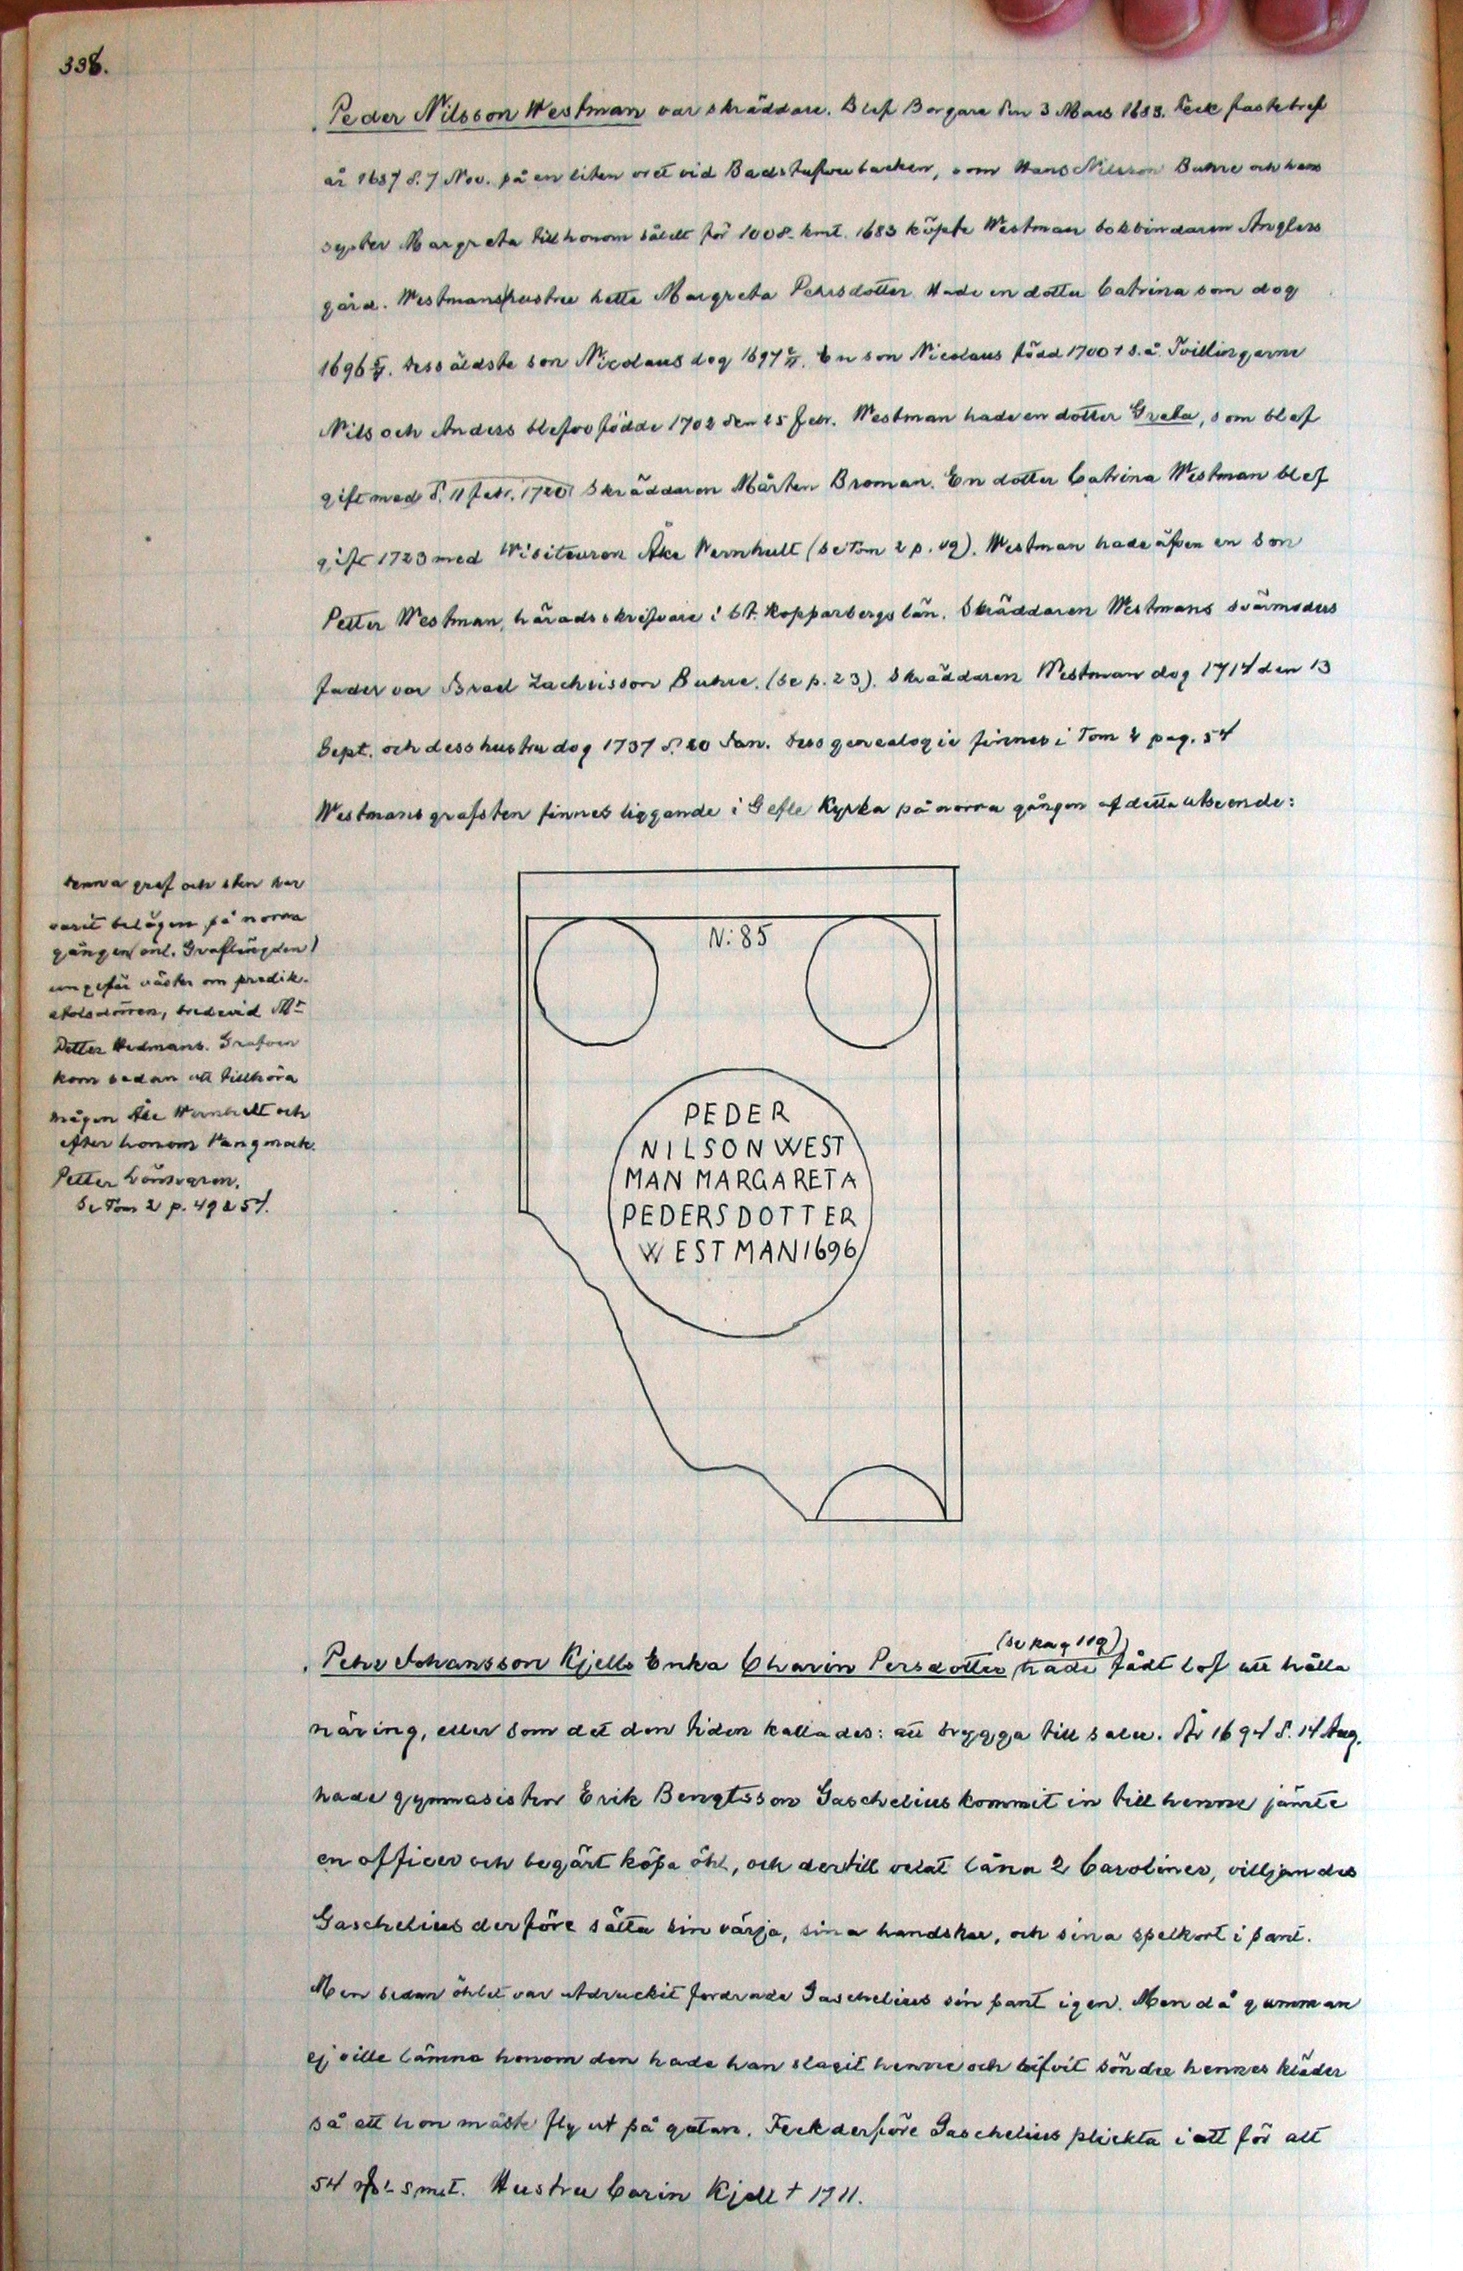 338.
Peder Nilsson Westman var skräddare. Blef Borgare den 3 Mars 1683. Feck fastebref
år 1687 d. 7 Nov. på en liten vret vid Badstufvubacken, som Hans Nilsson Buhre och hans
syster Margreta till honom såldt för 100 d. kmt. 1683 köpte Westman bokbindaren Anglers
gård. Westmans hustru hette Margreta Persdotter. Hade en dotter Catrina som dog
1696. Dess äldste son Nicolaus dog 1697. En son Nicolaus född 1700 † s.å. Tvillingarne
Nils och Anders blefvo födde 1702 den 25 Febr. Westman hade en dotter Greta, som blef
gift med d. 11 Febr. 1720 Skräddaren Mårten Broman. En dotter Catrina Westman blef
gift 1723 med Visiteuren Åke Wernhult (se Tom 2 p. 49). Westman hade äfven en son
Petter Westman, häradsskrifvare i St. Kopparbergs län. Skräddaren Westmans svärmoders
fader var Brael Zachrisson Buhre. (Se p. 23). Skräddaren Westman dog 1714 den 13
Sept. och dess hustru dog 1737 d. 20 Jan. Dess genealogie finnes i Tom 2 pag. 54
Westmans grafsten finnes liggande i Gefle Kyrka på norra gången af detta utseende:
Denna graf och sten har
varit belägen på norra
gången (enl. Graflängden)
ungefär väster om predik-
stolsdörren, bredevid Mr
Petter Hedmans. Grafven
kom sedan att tillhöra
mågen Åke Wernhult och
efter honom Kangmak.
Petter Lönnegren.
Se Tom 2 p. 49 & 54.
N: 85
PEDER
NILSON WEST
MAN MARGARETA
PEDERSDOTTER
WESTMAN 1696
(se pag 119)
Pehr Johansson Kjells Enka Charin Persdotter hade fådt lof att hålla
näring, eller som det den tiden kallades: att brygga till salu. År 1694 d. 14 Aug.
hade gymnasisten Erik Bengtsson Gaschelius kommit in till henne jämte
en officer och begärt köpa öhl, och dertill velat låna 2 Caroliner, villjandes
Gaschelius derföre sätta sin värja, sina handskar, och sina spelkort i pant.
Men sedan öhlet var utdruckit fordrade Gaschelius sin pant igen. Men då gumman
ej ville lämna honom den hade han slagit henne och rifvit söndre hennes kläder
så att hon måste fly ut på gatan. Feck derföre Gaschelius plickta i ett för alt
54 smt. Hustru Carin Kjell † 1711.